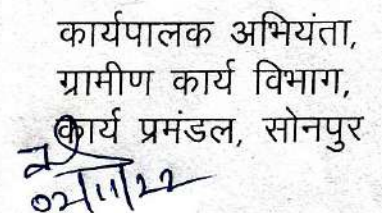 कार्यपालक अभियंता,
ग्रामीण कार्य विभाग,
कार्य प्रमंडल, सोनपुर
02/11/22